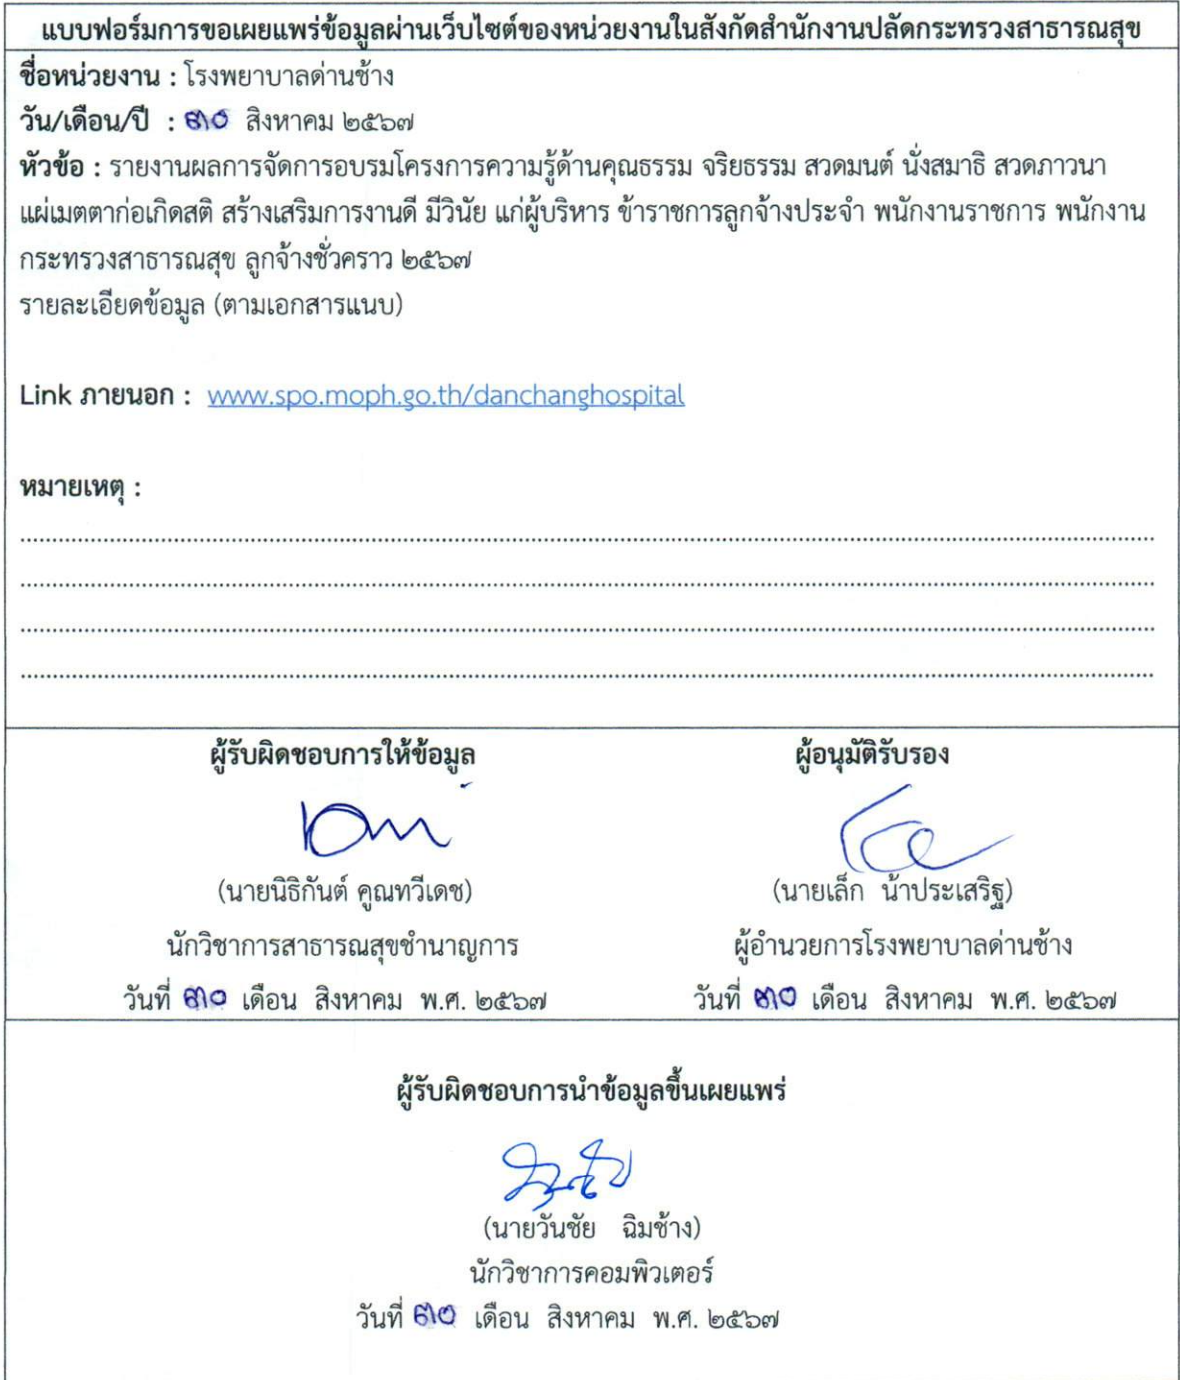 แบบฟอร์มการขอเผยแพร่ข้อมูลผ่านเว็บไซต์ของหน่วยงานในสังกัดสำนักงานปลัดกระทรวงสาธารณสุข
ชื่อหน่วยงาน : โรงพยาบาลด่านช้าง
วัน/เดือน/ปี : ๓๐ สิงหาคม ๒๕๖๗
หัวข้อ : รายงานผลการจัดการอบรมโครงการความรู้ด้านคุณธรรม จริยธรรม สวดมนต์ นั่งสมาธิ สวดภาวนา
แผ่เมตตาก่อเกิดสติ สร้างเสริมการงานดี มีวินัย แก่ผู้บริหาร ข้าราชการลูกจ้างประจำ พนักงานราชการ พนักงาน
กระทรวงสาธารณสุข ลูกจ้างชั่วคราว ๒๕๖๗
รายละเอียดข้อมูล (ตามเอกสารแนบ)
Link ภายนอก : www.spo.moph.go.th/danchanghospital
หมายเหตุ :
ผู้รับผิดชอบการให้ข้อมูล ผู้อนุมัติรับรอง
(นายนิธิกันต์ คูณทวีเดช) (นายเล็ก น้าประเสริฐ)
นักวิชาการสาธารณสุขชำนาญการ ผู้อำนวยการโรงพยาบาลด่านช้าง
วันที่ ๓๐ เดือน สิงหาคม พ.ศ. ๒๕๖๗ วันที่ ๓๐ เดือน สิงหาคม พ.ศ. ๒๕๖๗
ผู้รับผิดชอบการนำข้อมูลขึ้นเผยแพร่
(นายวันชัย ฉิมช้าง)
นักวิชาการคอมพิวเตอร์
วันที่ ๓๐ เดือน สิงหาคม พ.ศ. ๒๕๖๗